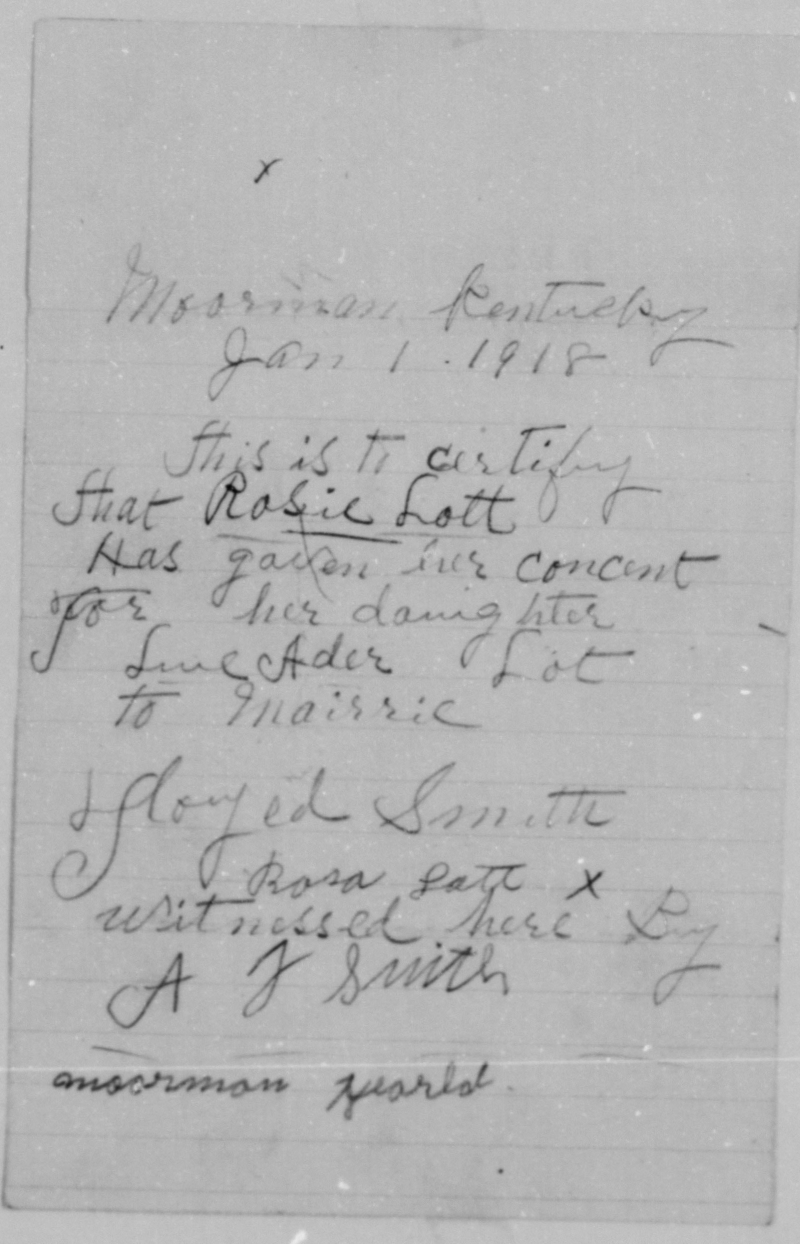 x
Moorman Kentucky
Jan 1. 1918
This is to certify
that Rosie Lott
Has gaven her concent
for her daughter
Sue Ader Lot
to Mairrie
Floyed Smith
Rosa Latt x
witnessed here By
A F Smith
moorman